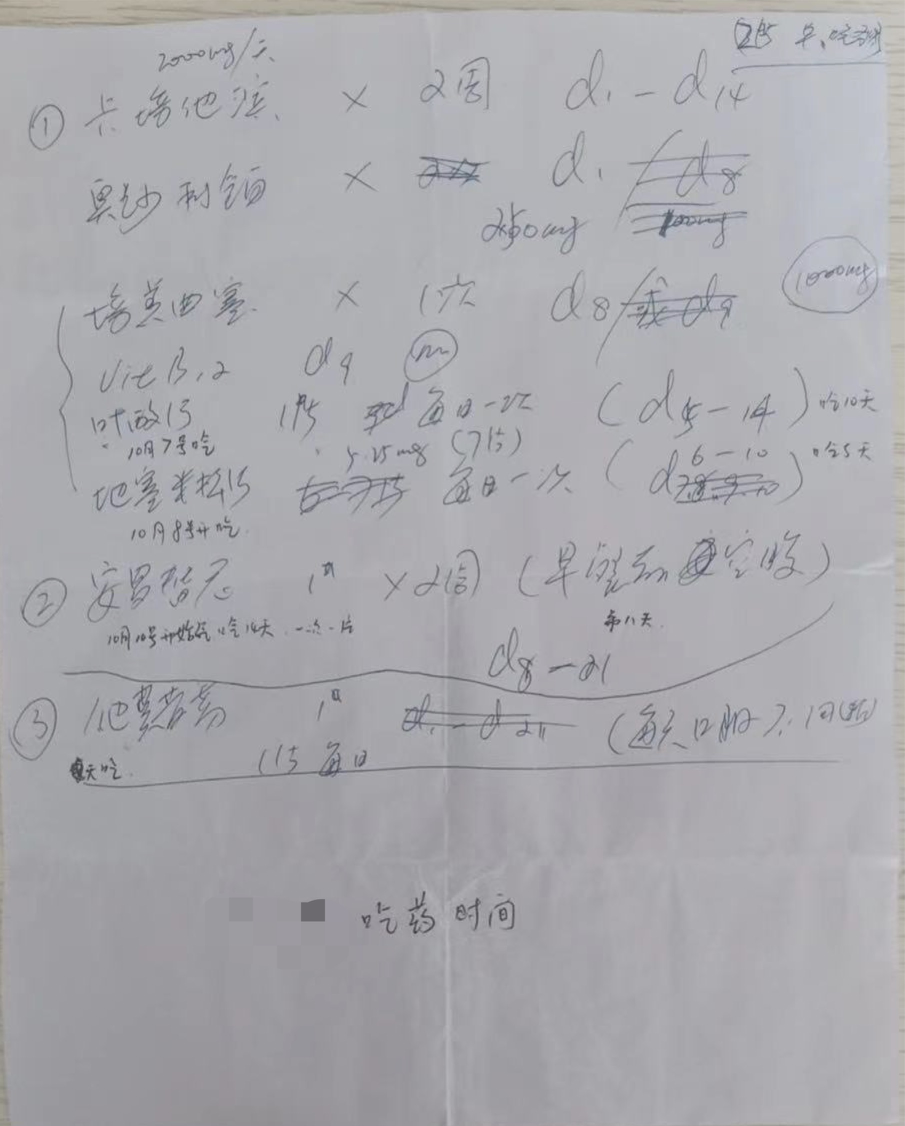 2000mg/天
① 卡培他滨 × 2周 d1-d14
奥沙利铂 × d1 d8
250mg
培美曲塞 × 1次 d8 或d9 1000mg
VitB12 d9
叶酸片 1片 每日一次 (d5-14) 吃10天
10月7号吃 5.25mg (7片)
地塞米松片 每日一次 (d6-10) 吃5天
10月8号开吃
② 安罗替尼 1# ×2周 (早 空腹)
10月10号开始吃 吃14天 一次一片 第八天
d8-21
③ 他莫昔芬 1# (每天口服
天吃 1片 每日
吃药时间